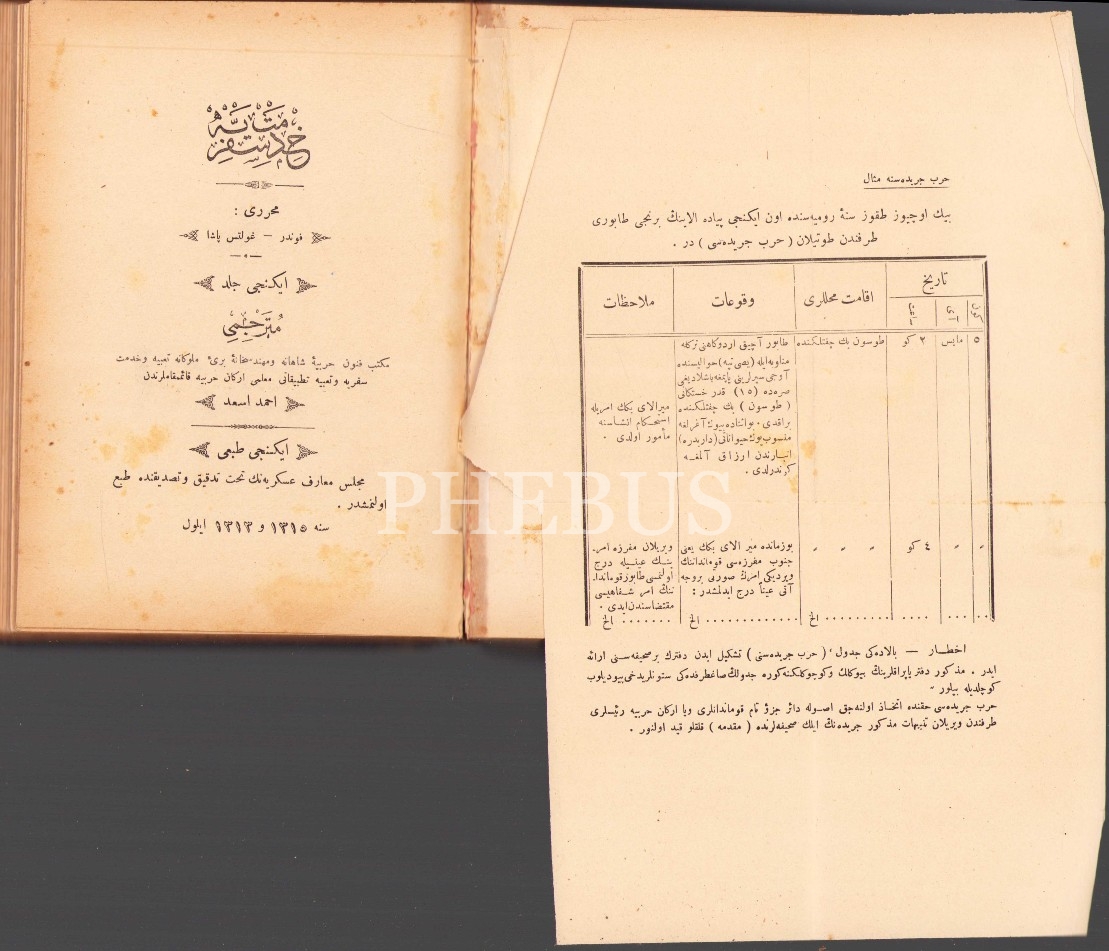 خدمت سفریه
محرری :
فوندر — غولتس پاشا
ایکنجی جلد
مترجمی
مکتب فنون حربیهٔ شاهانه و مهندسخانهٔ برئ ملوکانه تعبیه و خدمت
سفریه و تعبیه تطبیقاتی معلمی ارکان حربیه قائمقاملرندن
احمد اسعد
ایکنجی طبعی
مجلس معارف عسکریه‌نك تحت تدقیق و تصدیقنده طبع
اولنمشدر .
سنه ١٣١٥ و ١٣١٣ ایلول
PHEBUS
حرب جریده‌سنه مثال
بیك اوچیوز طقوز سنهٔ رومیه‌سنده اون ایکنجی پیاده الاینك برنجی طابوری
طرفندن طوتیلان ( حرب جریده‌سی ) در .
تاریخ
کون آی ساعت
اقامت محللری
وقوعات
ملاحظات
٥ مایس ٢ کو
طوسون بك چفتلکنده
طابور آچیق اردوکاهنی ترکله
مناوبه ایله (یصی تپه) حوالیسنده
آوجی سپرلرینی یاپمغه باشلادیغی
صره‌ده (١٥) قدر خسته‌کانی
( طوسون ) بك چفتلکنده
براقدی . بواثناده بیوك آغرلغه
منسوب یوك حیواناتی (داربدره)
انبارندن ارزاق آلمغه
کوندرلدی .
میرالای بکك امریله
استحکام انشاسنه
مأمور اولدی .
〃 〃 ٤ کو
〃 〃 〃
بوزمانده میر الای بکك یعنی
جنوب مفرزه‌سی قومانداننك
ویردیکی امرك صورتی بروجه
آتی عیناً درج ایدلمشدر :
............. الخ
ویریلان مفرزه امر-
ینك عینیله درج
اولنمسی طابور قوماندا-
ننك امر شفاهیسی
مقتضاسندن ایدی .
....... الخ
......... الخ
اخطار — بالاده‌کی جدول ، ( حرب جریده‌سنی ) تشکیل ایدن دفترك بر صحیفه‌سنی ارائه
ایدر . مذکور دفتر یاپراقلرینك بیوکلك و کوچوکلکنه کوره جدولك صاغ طرفده‌کی ستونلریدخی بیودیلوب
کوچلدیله بیلور .
حرب جریده‌سی حقنده اتخاذ اولنه‌جق اصوله دائر جزؤ تام قوماندانلری ویا ارکان حربیه رئیسلری
طرفندن ویریلان تنبیهات مذکور جریده‌نك ایلك صحیفه‌لرنده ( مقدمه ) قلقلو قید اولنور .